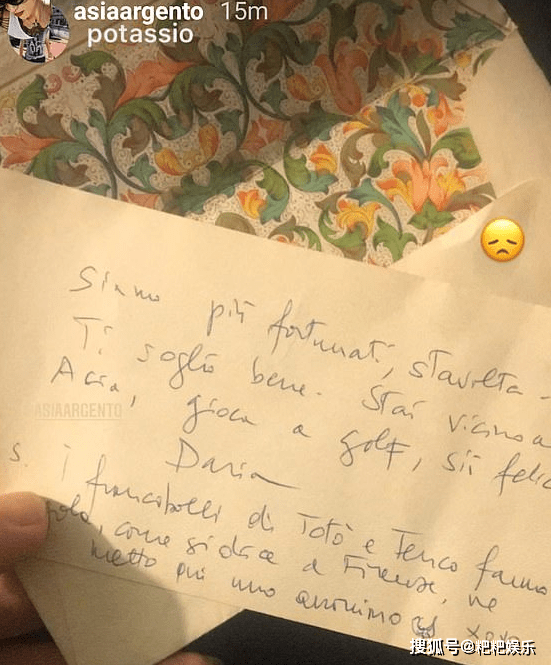 asiaargento 15m
potassio
Siamo più fortunati, stavolta -
Ti voglio bene. Stai vicino a
Asia, gioca a golf, sii felic
ASIAARGENTO
Daria
s. I francobolli di Totò e Tenco fanno
gola, come si dice a Firenze, ne
metto più uno anonimo
搜狐号@粑粑娱乐